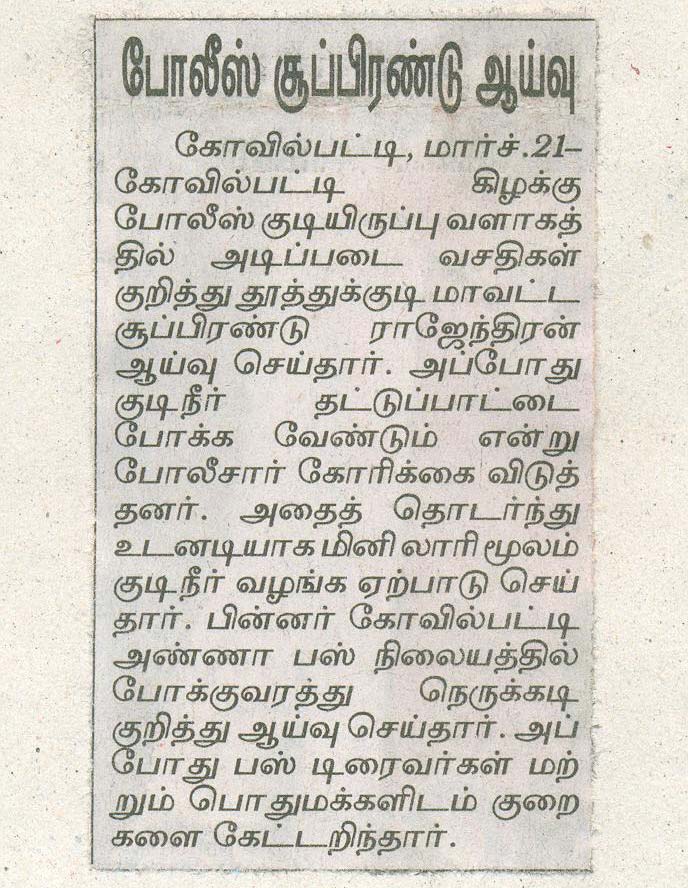 போலீஸ் சூப்பிரண்டு ஆய்வு
கோவில்பட்டி, மார்ச்.21–
கோவில்பட்டி கிழக்கு
போலீஸ் குடியிருப்பு வளாகத்
தில் அடிப்படை வசதிகள்
குறித்து தூத்துக்குடி மாவட்ட
சூப்பிரண்டு ராஜேந்திரன்
ஆய்வு செய்தார். அப்போது
குடிநீர் தட்டுப்பாட்டை
போக்க வேண்டும் என்று
போலீசார் கோரிக்கை விடுத்
தனர். அதைத் தொடர்ந்து
உடனடியாக மினி லாரி மூலம்
குடிநீர் வழங்க ஏற்பாடு செய்
தார். பின்னர் கோவில்பட்டி
அண்ணா பஸ் நிலையத்தில்
போக்குவரத்து நெருக்கடி
குறித்து ஆய்வு செய்தார். அப்
போது பஸ் டிரைவர்கள் மற்
றும் பொதுமக்களிடம் குறை
களை கேட்டறிந்தார்.